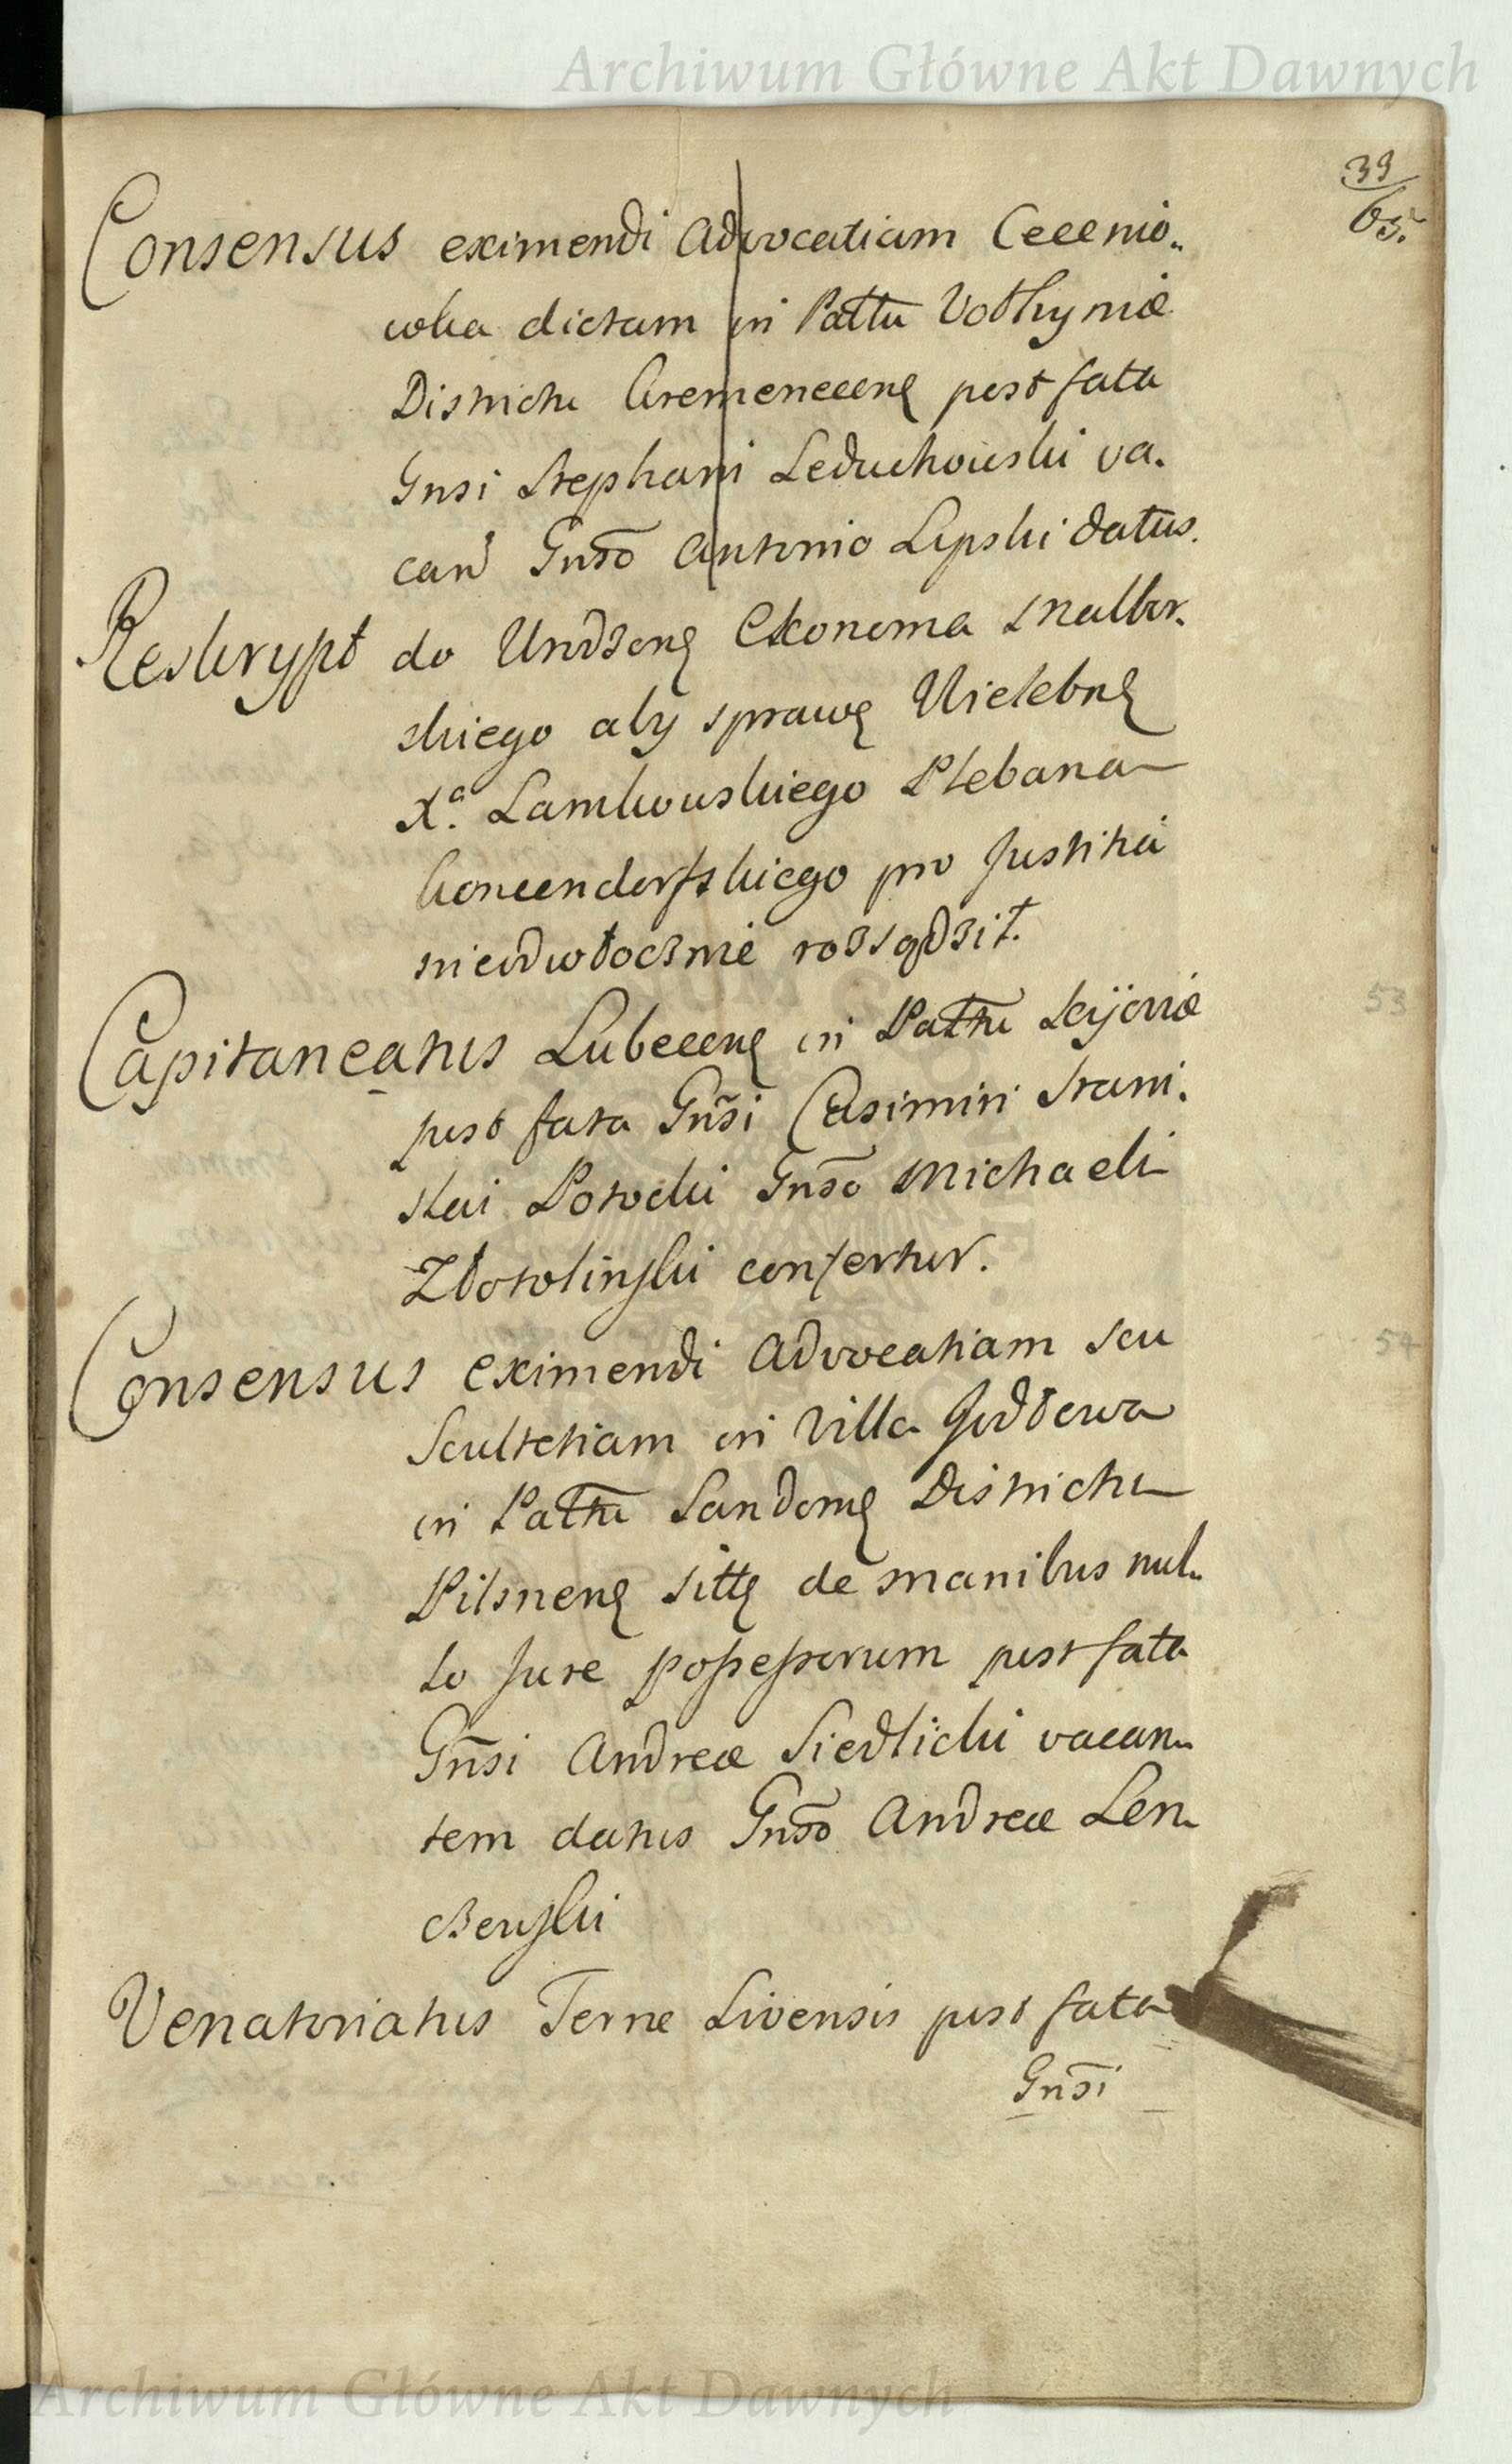 Archiwum Główne Akt Dawnych
39
65.
Consensus eximendi Advocatiam
dictam in Pattu Volhyniæ
Districtu post fata
Gnsi Stephani Leduchowski va.
can̄ Gnso Antonio Lipski datus.
Reskrypt do Urodzonę Ekonoma Malbor.
skiego aby sprawę Wielebnę
Xa. Lamkowskiego Plebana
pro Justitia
nieodwłocznie rozsądził.
Capitaneatus Lubecenę in Pattu Kijoviæ
53
post fata Gnsi Casimiri Stani.
slai Potocki Gnso Michaeli
Złotolinski confertur.
Consensus eximendi Advocatiam seu
54
Scultetiam in Villa Jodłowa
in Pattu Sandomę Districtu
Pilsnenę sittę de manibus nul„
lo Jure possessorum post fata
Gnsi Andreæ Siedlicki vacan„
tem datus Gnso Andreæ Len„
czewski
Venatoriatus Terræ Livensis post fata
Gnsi
Archiwum Główne Akt Dawnych